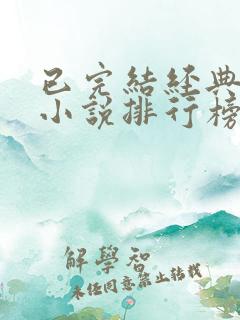 已完結經典
小說排行榜
解學智
未任同意禁止轉載